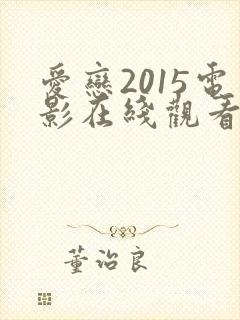 愛戀2015電
影在綫觀看
董治良